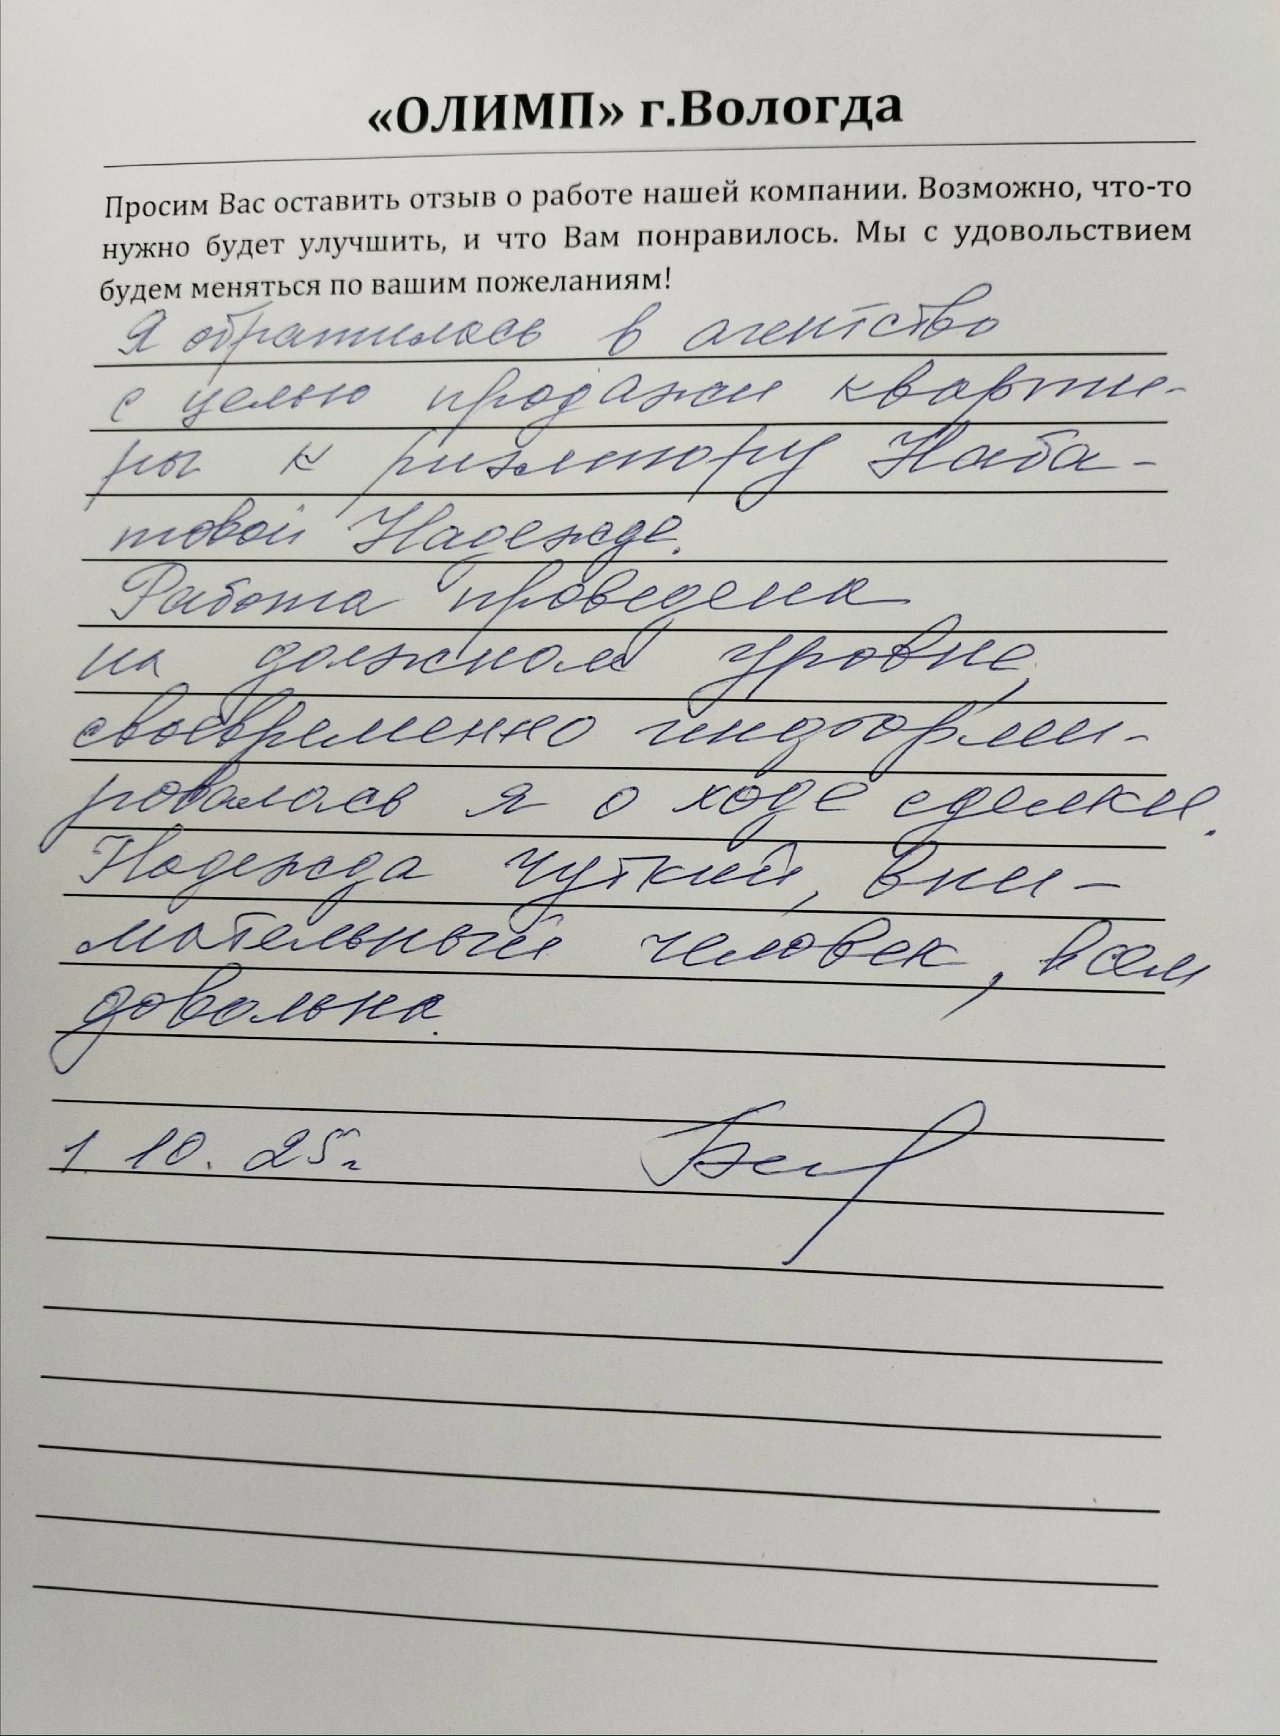 «ОЛИМП» г.Вологда
Просим Вас оставить отзыв о работе нашей компании. Возможно, что-то
нужно будет улучшить, и что Вам понравилось. Мы с удовольствием
будем меняться по вашим пожеланиям!
Я обратилась в агентство
с целью продажи кварти-
ры к риэлтору Наба-
товой Надежде.
Работа проведена
на должном уровне,
своевременно информи-
ровалась я о ходе сделки.
Надежда чуткий, вни-
мательный человек, всем
довольна.
1. 10. 25г